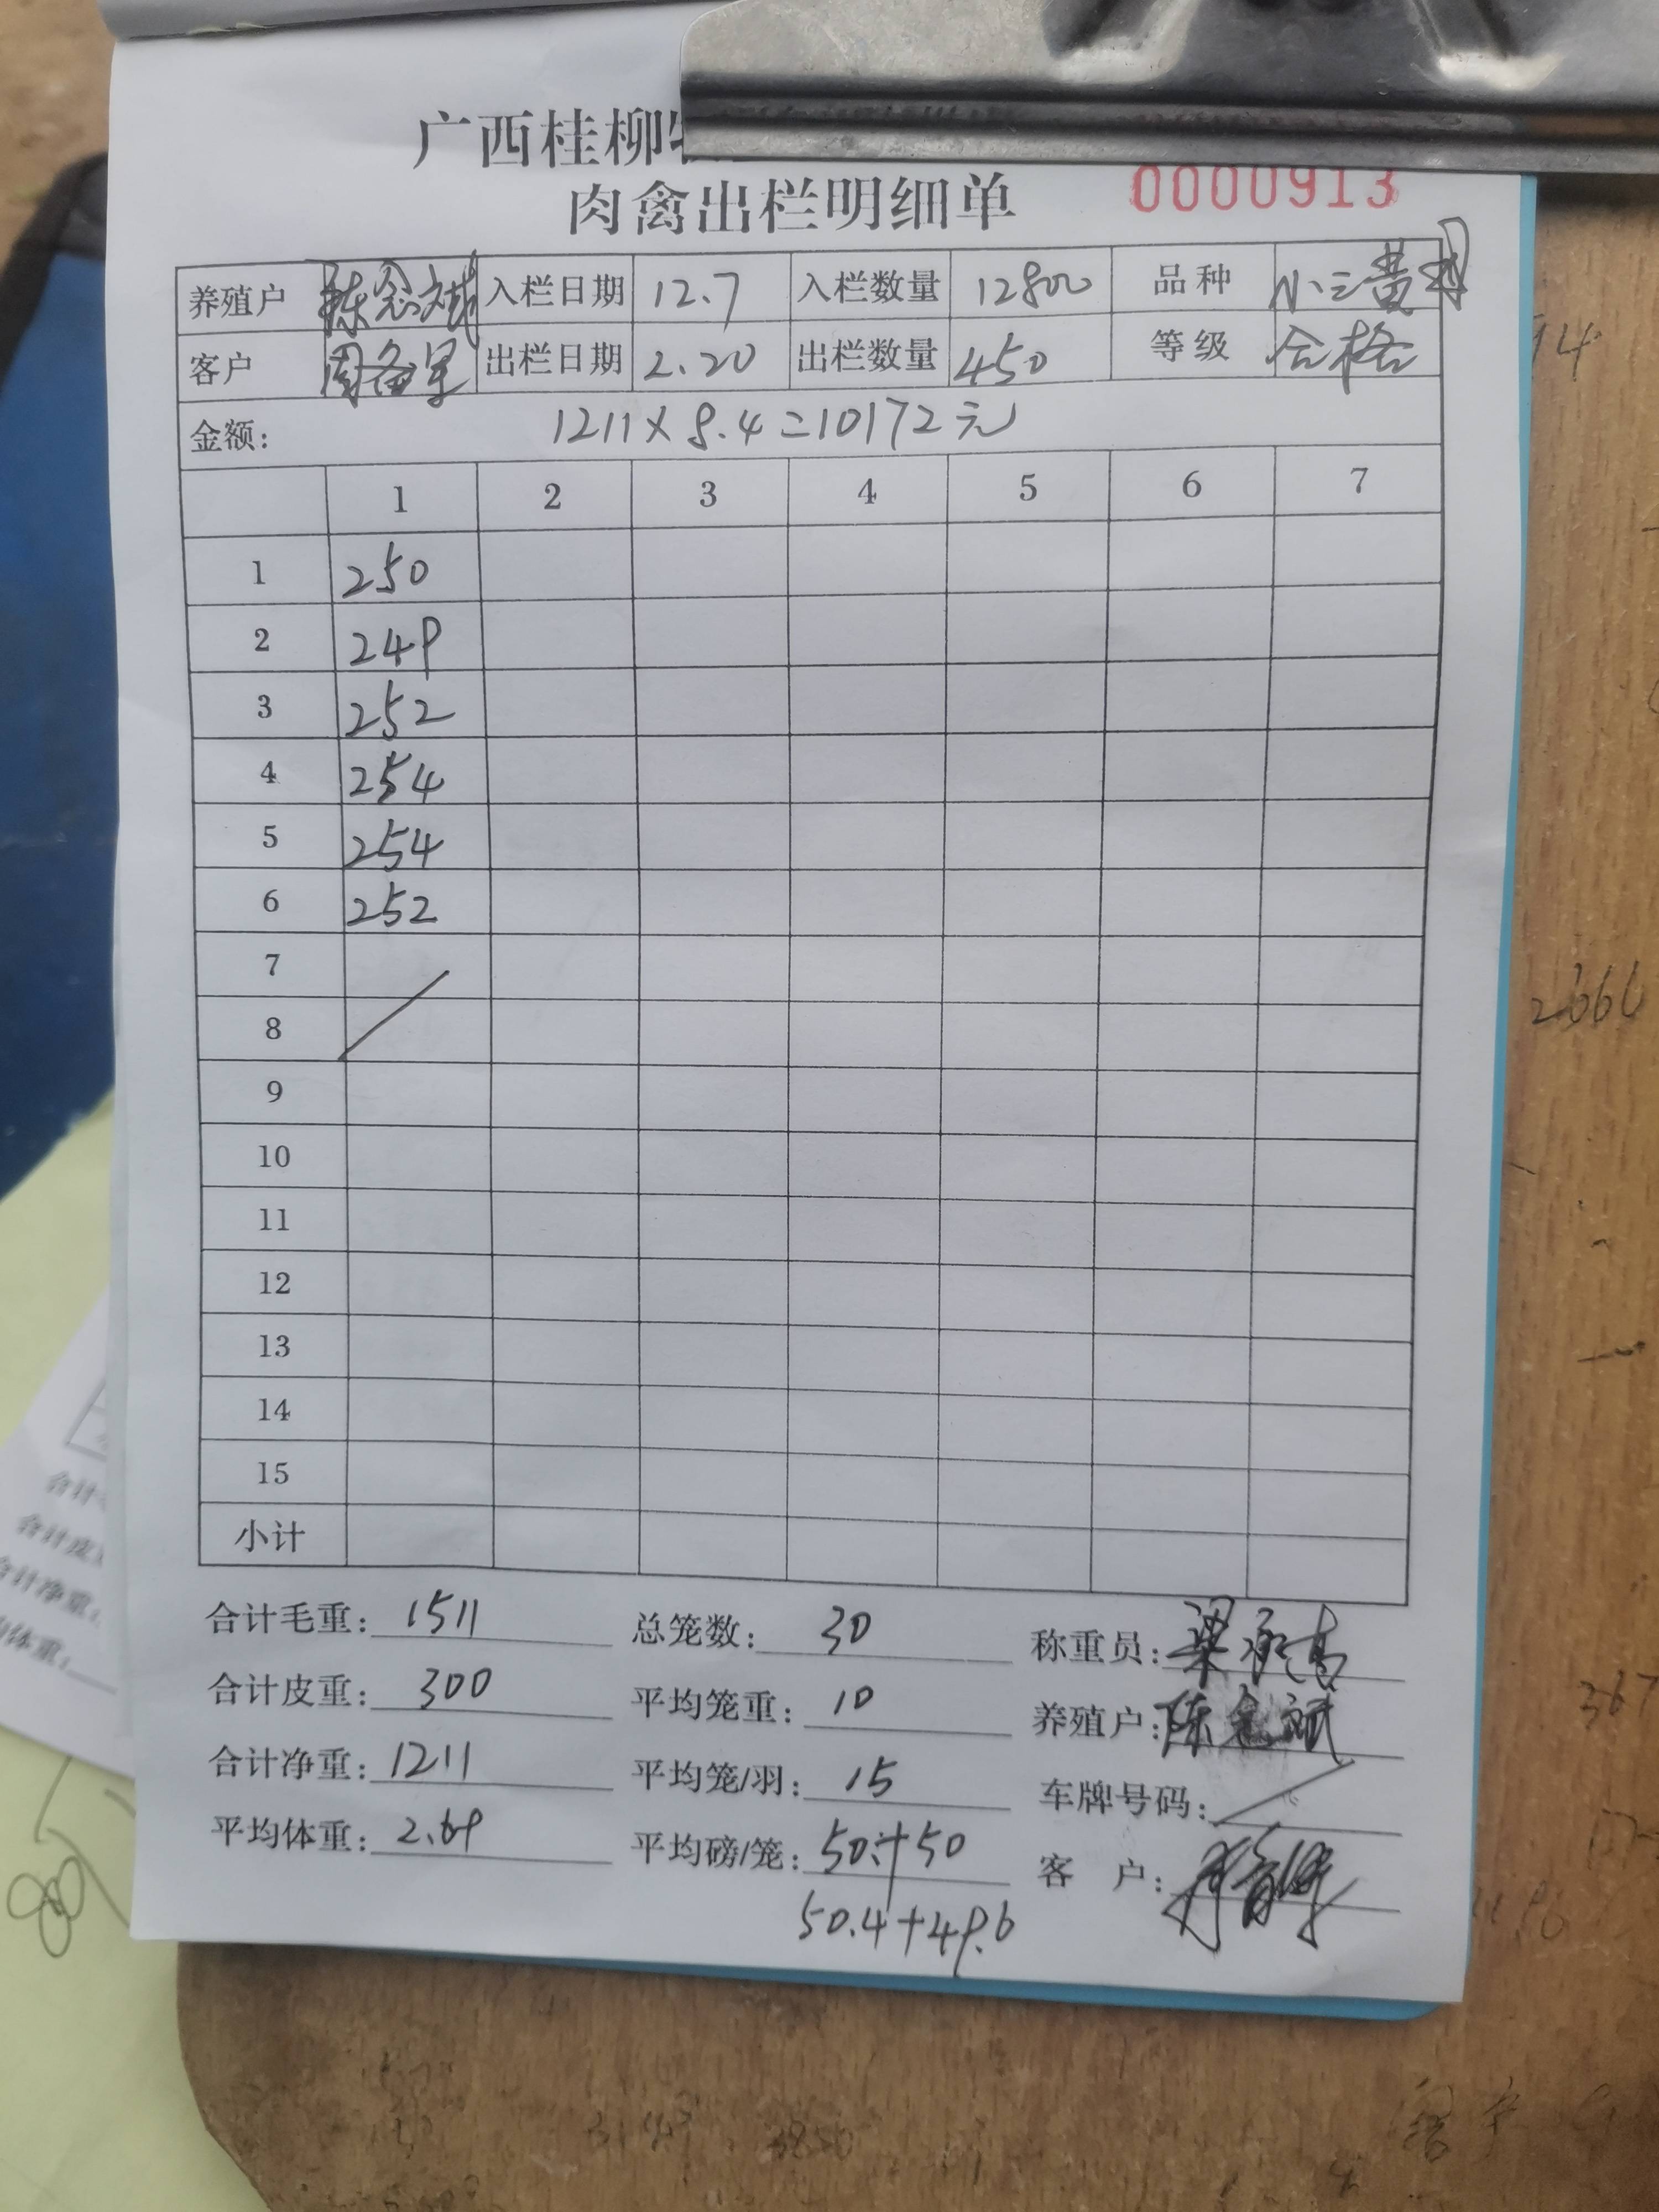 广西桂柳牧
肉禽出栏明细单 0000913
养殖户 陈念斌 入栏日期 12.7 入栏数量 12800 品种 小三黄
客户 周备军 出栏日期 2.20 出栏数量 450 等级 合格
金额: 1211×8.4=10172元
1 2 3 4 5 6 7
1 250
2 249
3 252
4 254
5 254
6 252
7
8
9
10
11
12
13
14
15
小计
合计毛重: 1511 总笼数: 30 称重员: 梁
合计皮重: 300 平均笼重: 10 养殖户: 陈念斌
合计净重: 1211 平均笼/羽: 15 车牌号码:
平均体重: 2.69 平均磅/笼: 50 客 户:
50.4+49.6
合计
合计皮
合计净重:
体重:
14
367